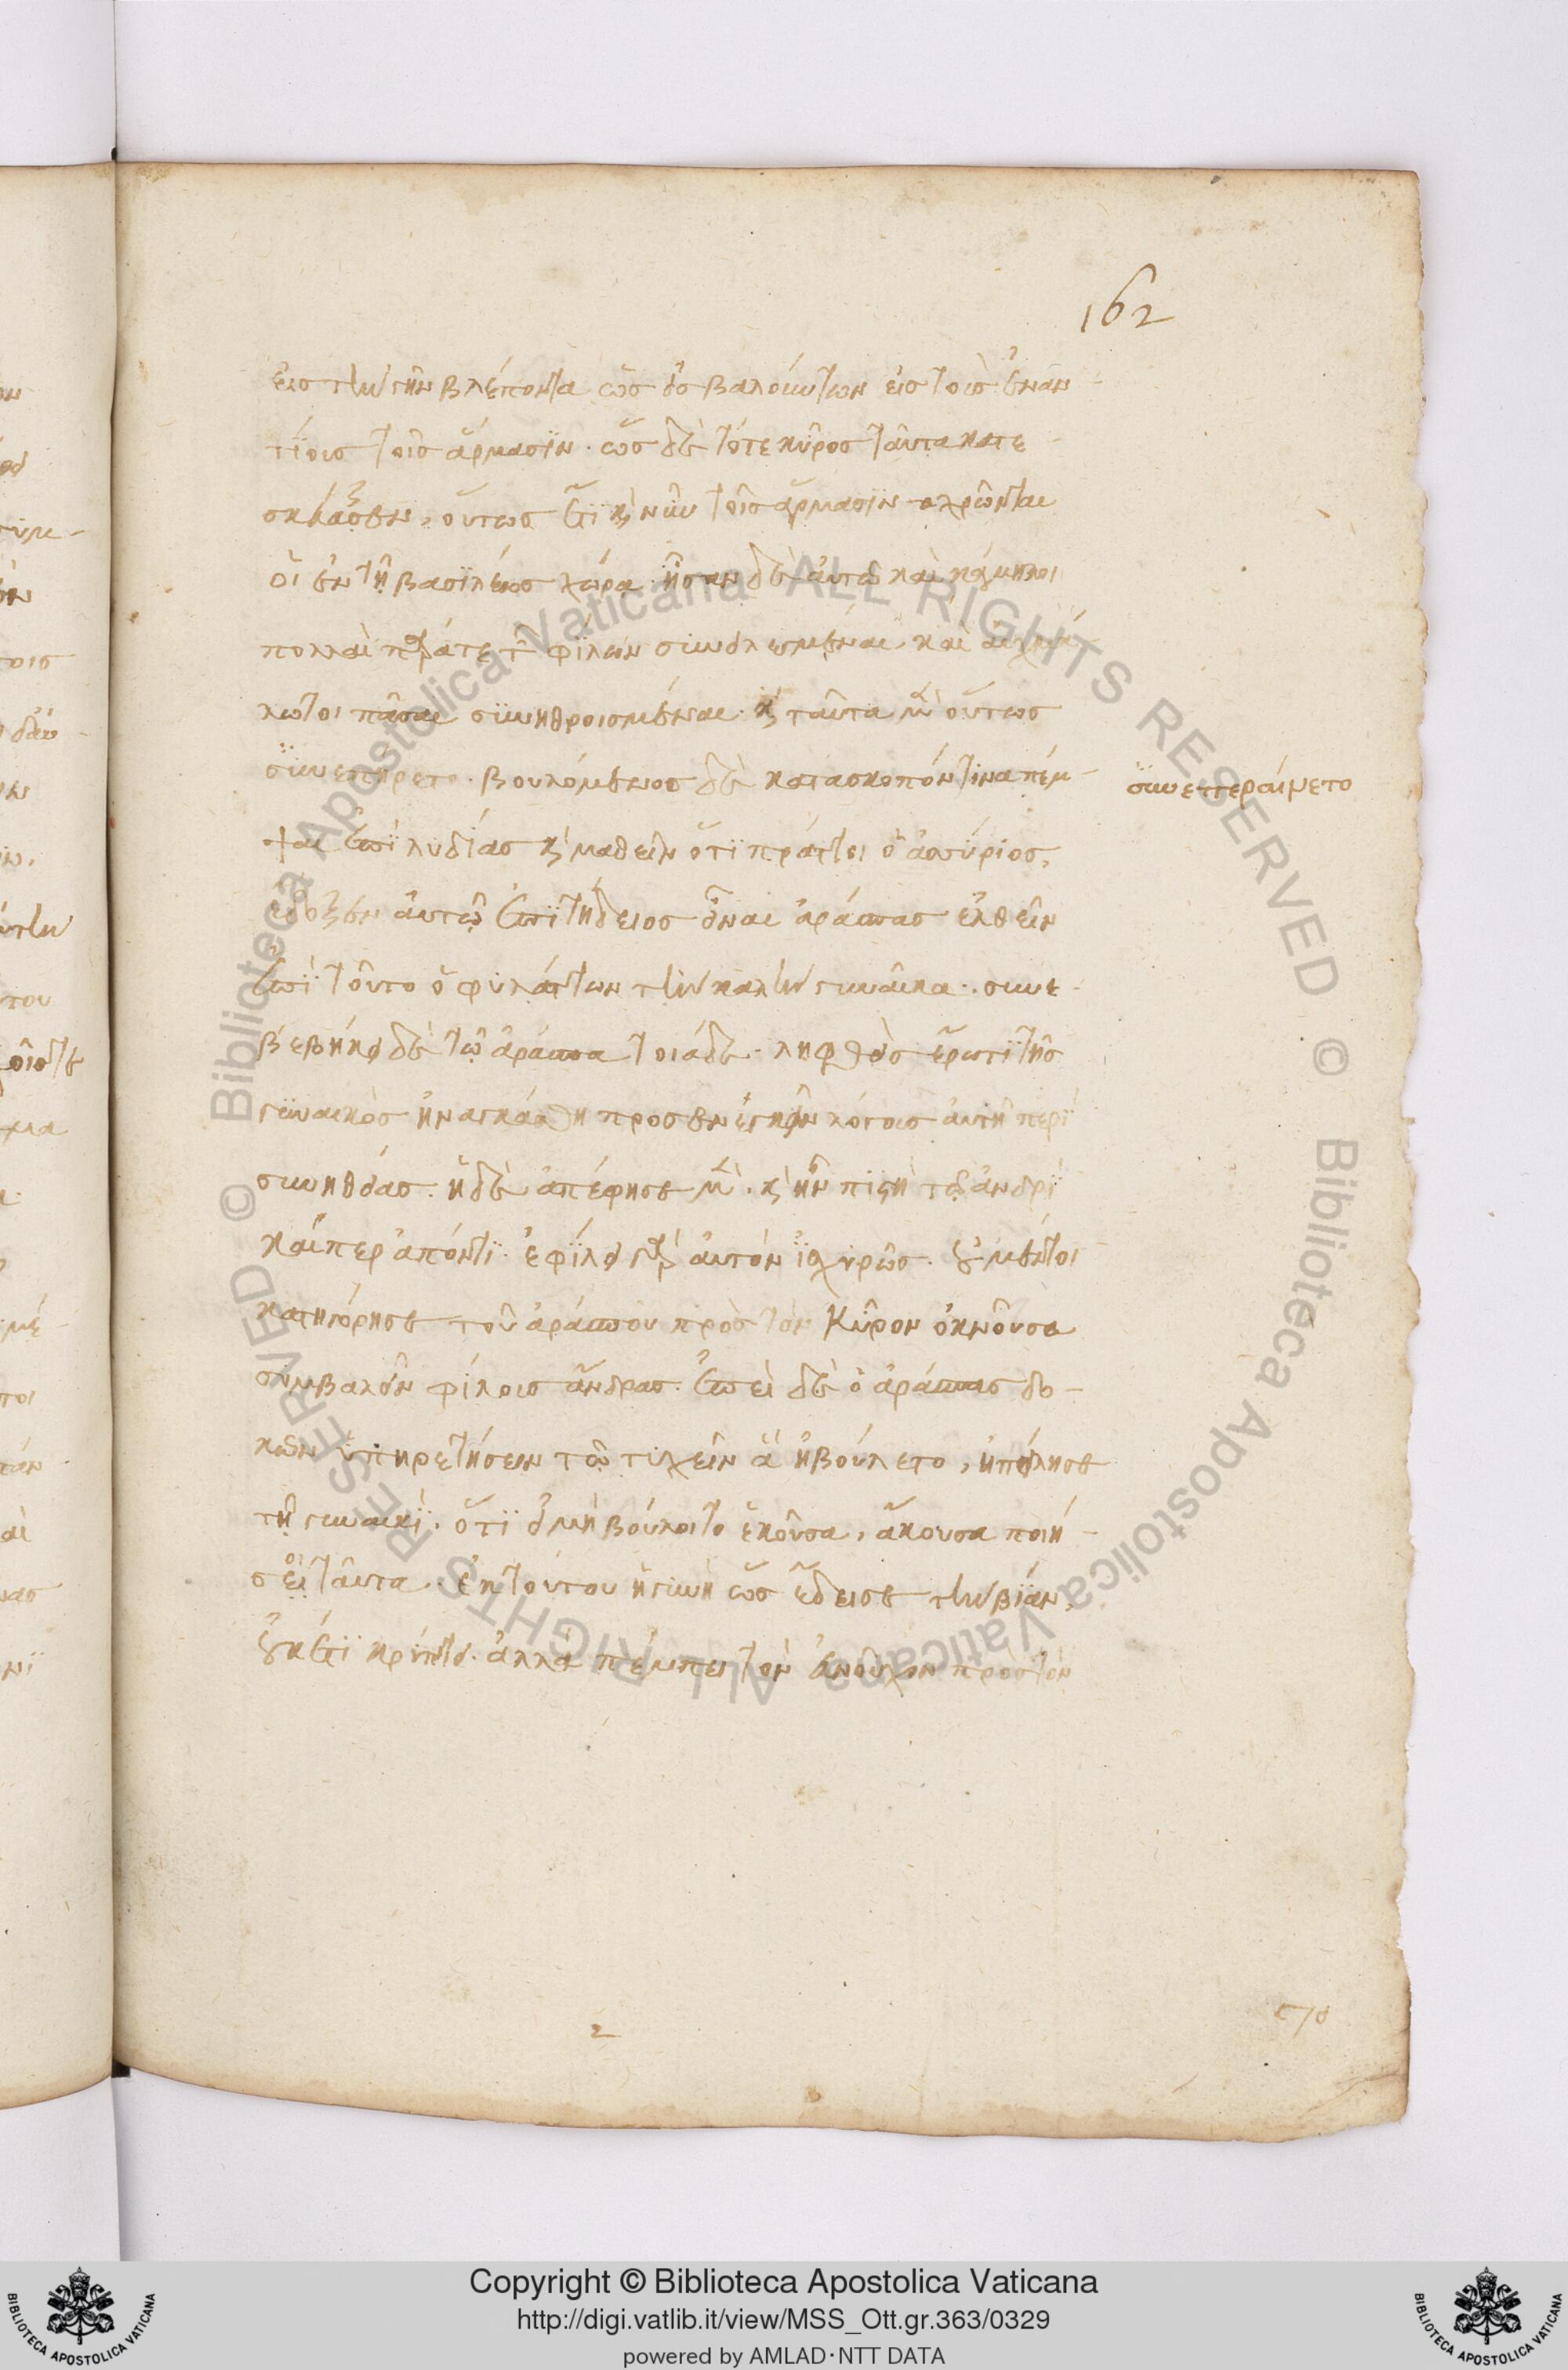 162
εἰς τὴν γῆν βλέποντα ὡς ἐμβαλούντων εἰς τοῖς ἐναν-
τίοις τοῖς ἅρμασϊν. ὡς δὲ τότε κῦρος ταῦτα κατε-
σκεύασεν, οὕτως ἔτϊ καὶ νῦν τοῖς ἅρμασϊν χρῶνται
οἱ ἐν τῇ βασϊλέως χώρα. ἦσαν δὲ αὐτῷ καὶ κάμηλοι
πολλαὶ παρά τε τῶν φίλων συνειλεγμέναι καὶ αἰχμά
λωτοι πᾶσαι συνηθροισμέναι. καὶ ταῦτα μὲν οὕτως
συνεπήρετο. βουλόμενος δὲ κατασκοπόν τινα πέμ-
συνεπεραίνετο
ψαι ἐπὶ λυδίας καὶ μαθεῖν ὅτϊ πράττει ὁ ἀσσύριος,
ἔδοξεν αὐτῷ ἐπιτήδειος εἶναι ἀράσπας ἐλθεῖν
ἐπὶ τοῦτο ὁ φυλάττων τὴν καλὴν γυναῖκα. συνε-
βεβήκει δὲ τῷ ἀράσπα τοιάδε. ληφθεὶς ἔρωτϊ τῆς
γυναικὸς ἠναγκάσθη προσενεγκεῖν λόγοις αὐτῇ περὶ
συνηθείας. ἡ δὲ ἀπέφησε μὲν. καὶ ἦν πιστὴ τῷ ἀνδρὶ
καίπερ ἀπόντϊ. ἐφίλει γὰρ αὐτὸν ἰσχυρῶς. οὐ μέντοι
κατηγόρησε τοῦ ἀράσπου πρὸς τὸν Κῦρον ὀκνοῦσα
συμβαλεῖν φίλοις ἄνδρας. ἐπεὶ δὲ ὁ ἀράσπας δο-
κῶν ὑπηρετήσειν τῷ τυχεῖν ἃ ἠβούλετο, ἠπείλησε
τῇ γυναικὶ. ὅτϊ εἰ μὴ βούλοιτο ἑκοῦσα, ἄκουσα ποιή-
σει ταῦτα. ἐκ τούτου ἡ γυνὴ ὡς ἔδεισε τὴν βίαν,
οὐκέτϊ κρύπτει. ἀλλὰ πέμπει τὸν εὐνοῦχον πρὸς τὸν
2
Copyright © Biblioteca Apostolica Vaticana
http://digi.vatlib.it/view/MSS_Ott.gr.363/0329
powered by AMLAD·NTT DATA